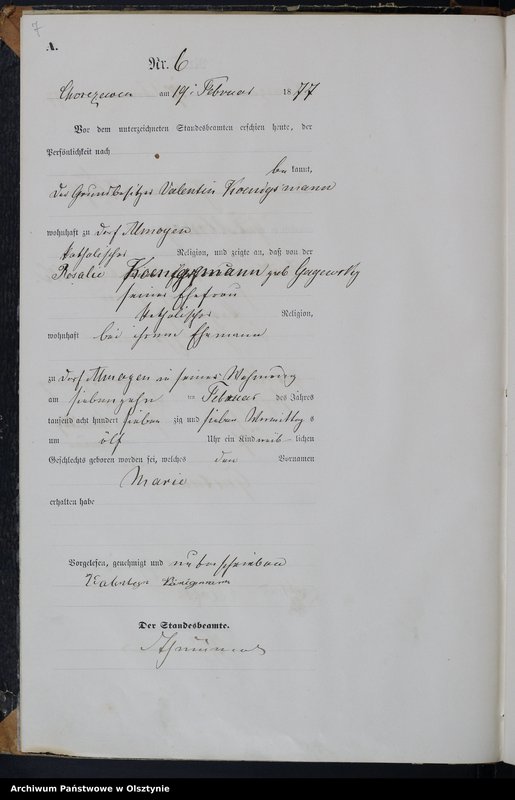 7
A.
Nr. 6
am 19. Februar 1877
Vor dem unterzeichneten Standesbeamten erschien heute, der
Persönlichkeit nach
be kannt,
der Grundbesitzer Valentin Koenigsmann
wohnhaft zu Dorf Mnoyen
katholischer Religion, und zeigte an, daß von der
Rosalie Koenigsmann geb
seiner Ehefrau
katholischer Religion,
wohnhaft bei ihrem Ehemann
zu Dorf Mnoyen in seiner Wohnung
am siebenzehn ten Februar des Jahres
tausend acht hundert sieben zig und sieben Vormittag s
um elf Uhr ein Kind weib lichen
Geschlechts geboren worden sei, welches den Vornamen
Marie
erhalten habe
Vorgelesen, genehmigt und unterschrieben
Der Standesbeamte.
Archiwum Państwowe w Olsztynie